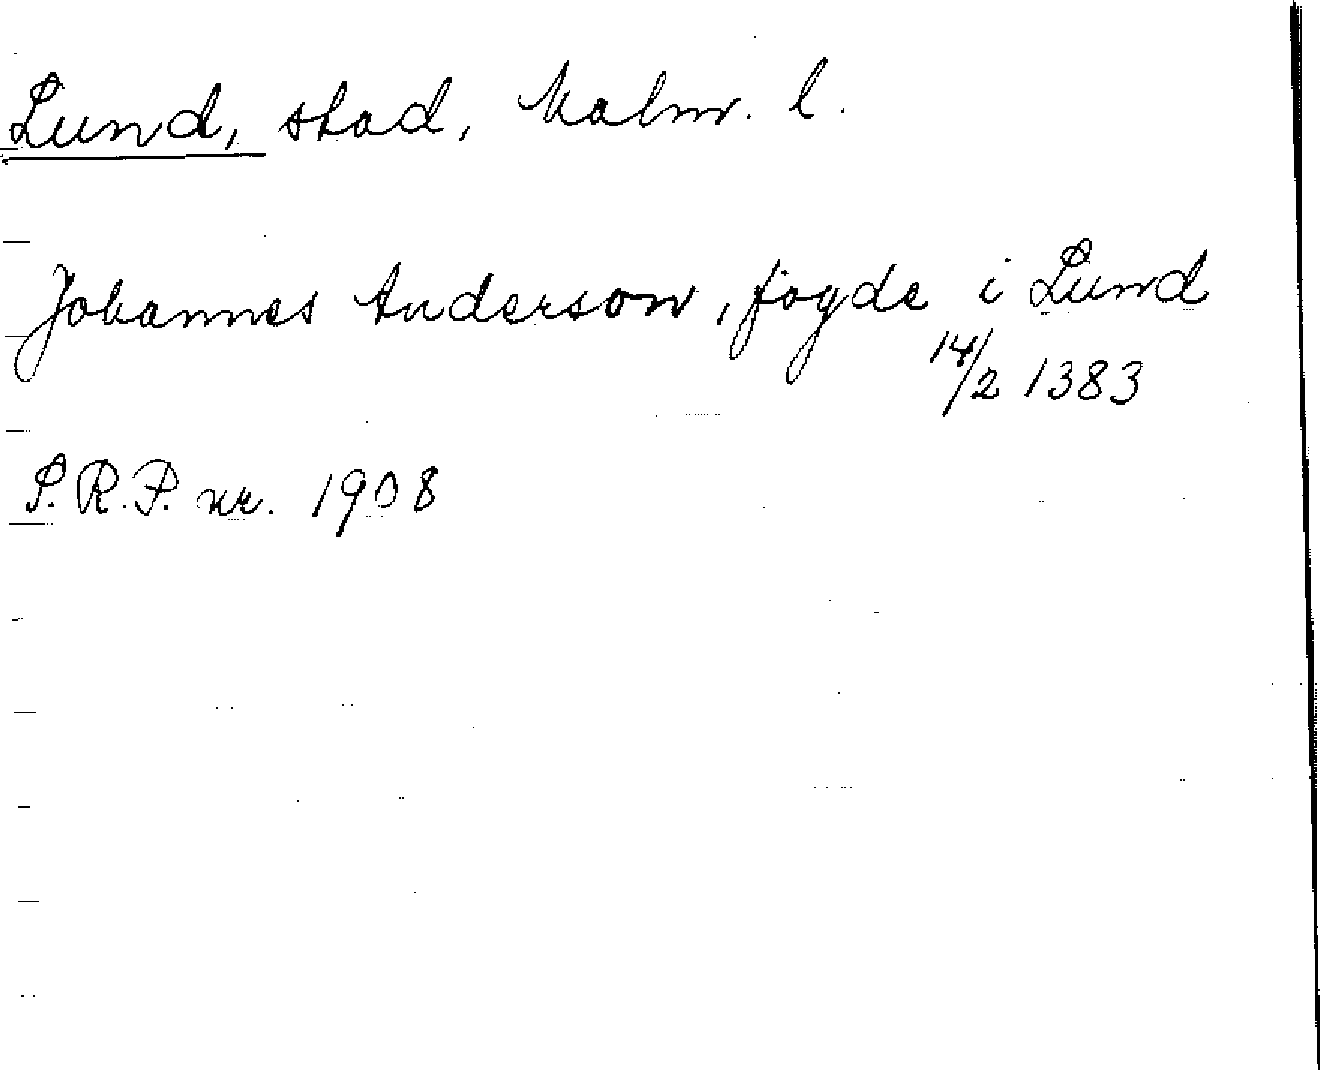 Lund, stad, Malm. l.
Johannes Anderson, fogde i Lund
14/2 1383
S.R.P. nr. 1908